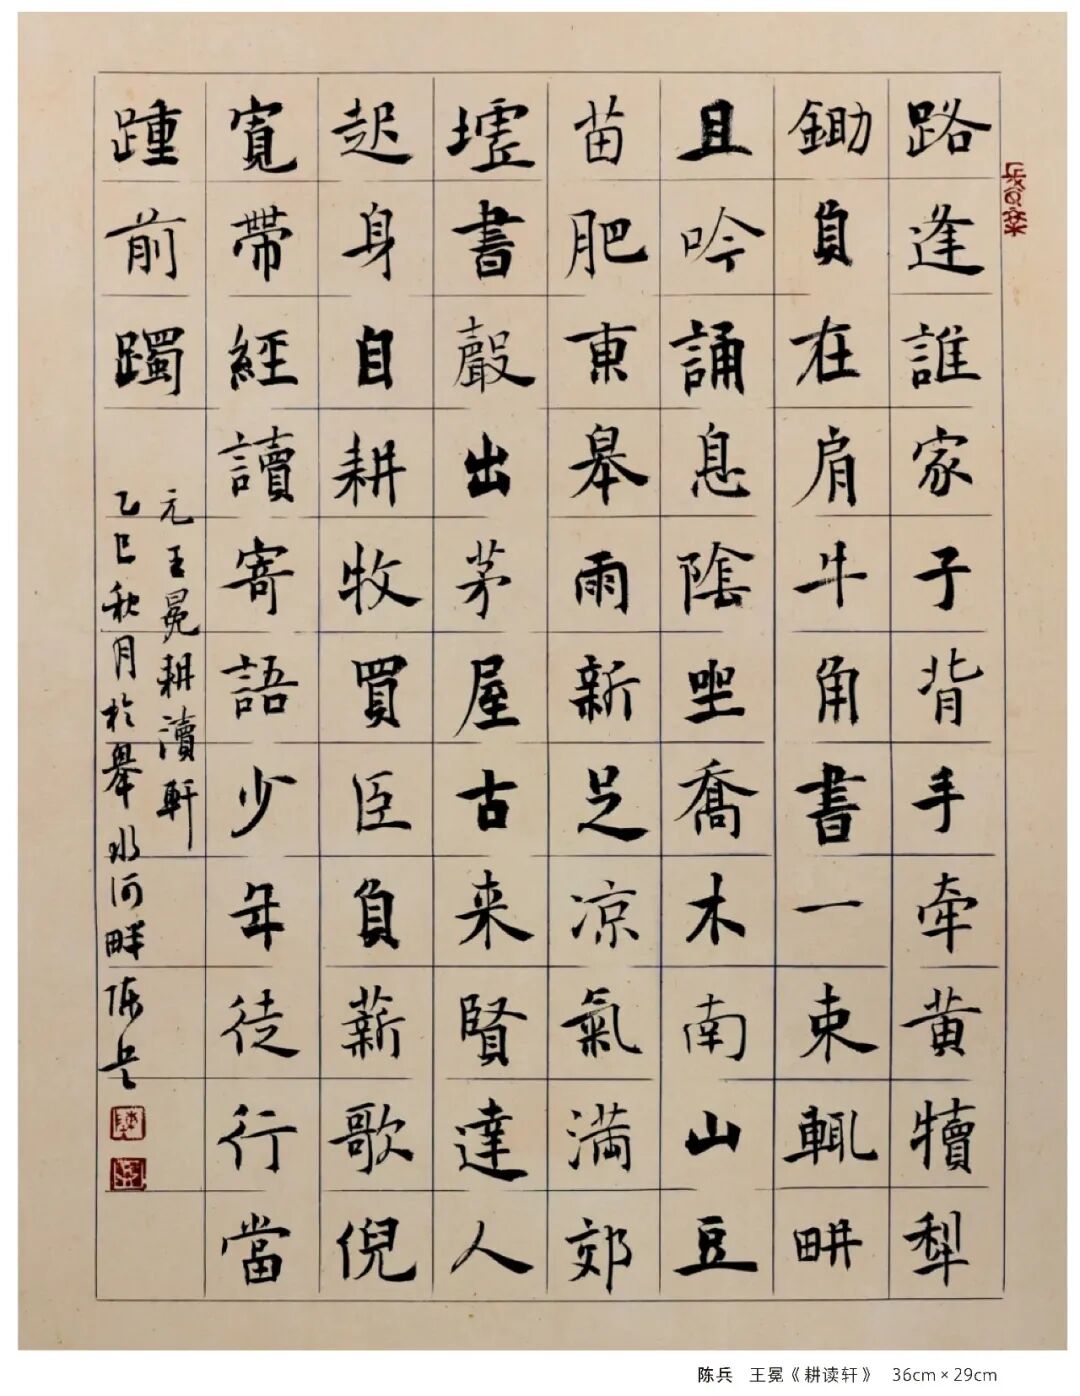 路逢誰家子背手牽黄犢犁
鋤負在肩牛角書一束輒畊
且吟誦息陰坐喬木南山豆
苗肥東皋雨新足凉氣満郊
墟書聲出茅屋古来賢達人
起身自耕牧買臣負薪歌倪
寬帶經讀寄語少年徒行當
踵前躅
元王冕耕瀆軒
乙巳秋月於舉水河畔陈兵
陈兵 王冕《耕读轩》 36cm×29cm